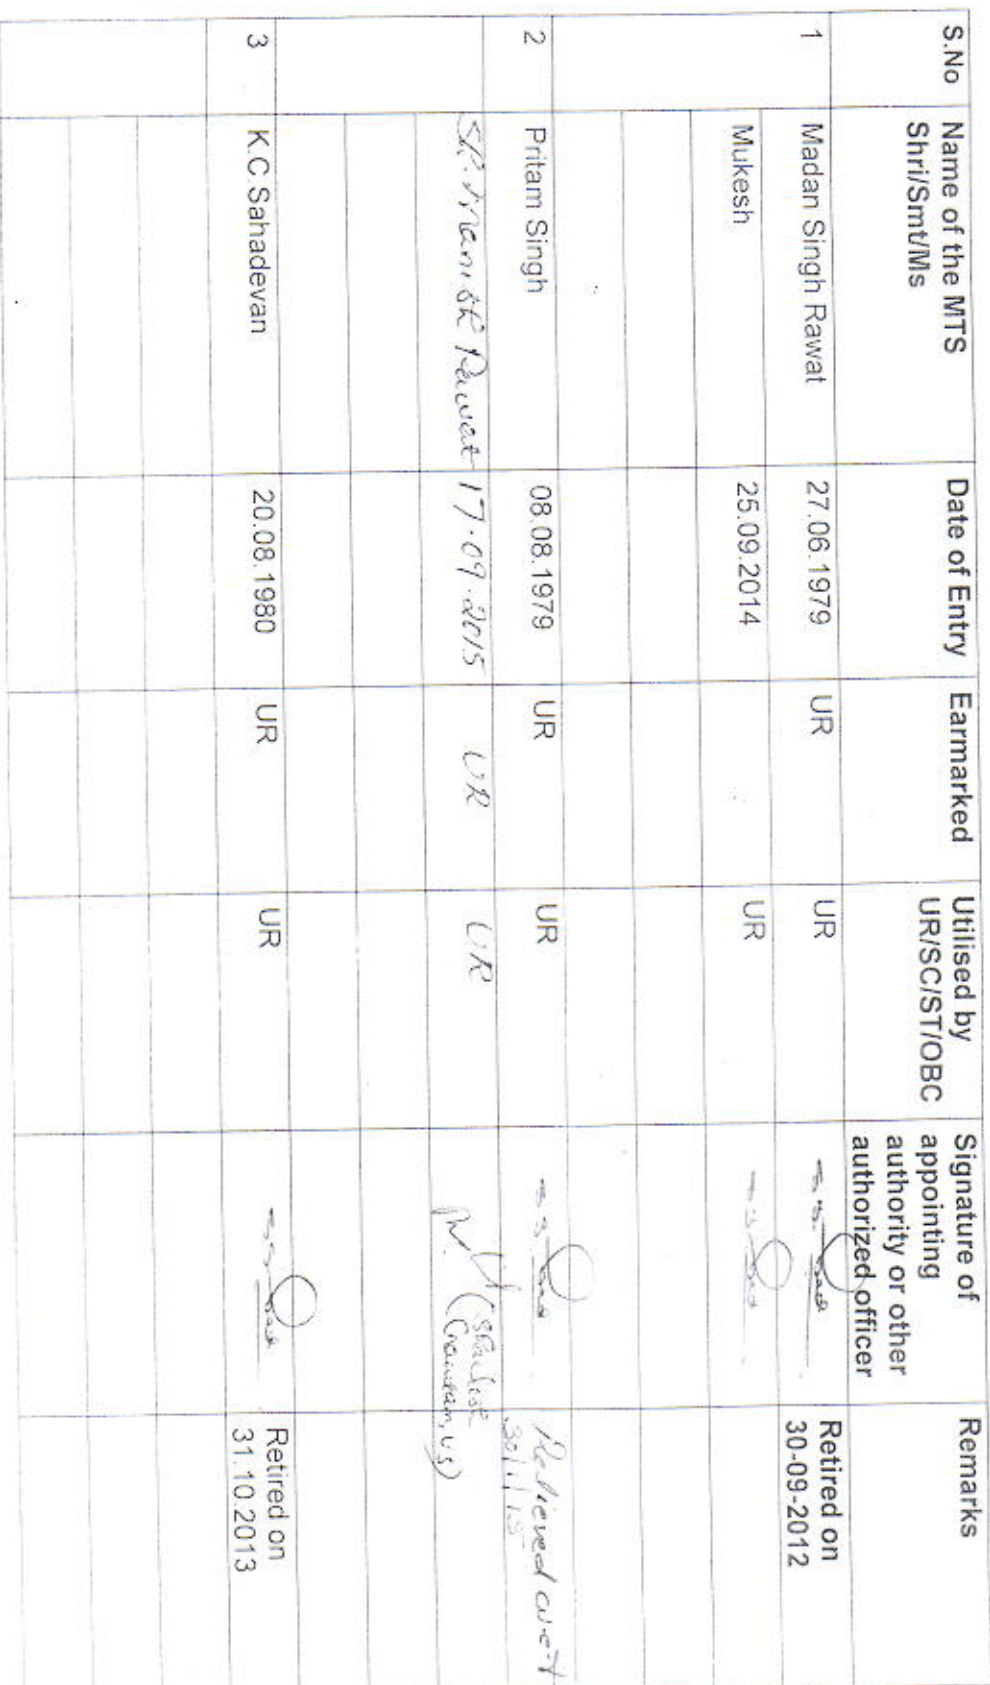 S.No Name of the MTS Shri/Smt/Ms Date of Entry Earmarked Utilised by UR/SC/ST/OBC Signature of appointing authority or other authorized officer Remarks
1 Madan Singh Rawat 27.06.1979 UR UR Retired on 30-09-2012
Mukesh 25.09.2014 UR
2 Pritam Singh 08.08.1979 UR UR Relieved w.e.f
Sh. Manish Rawat 17.09.2015 UR UR
3 K.C.Sahadevan 20.08.1980 UR UR Retired on 31.10.2013